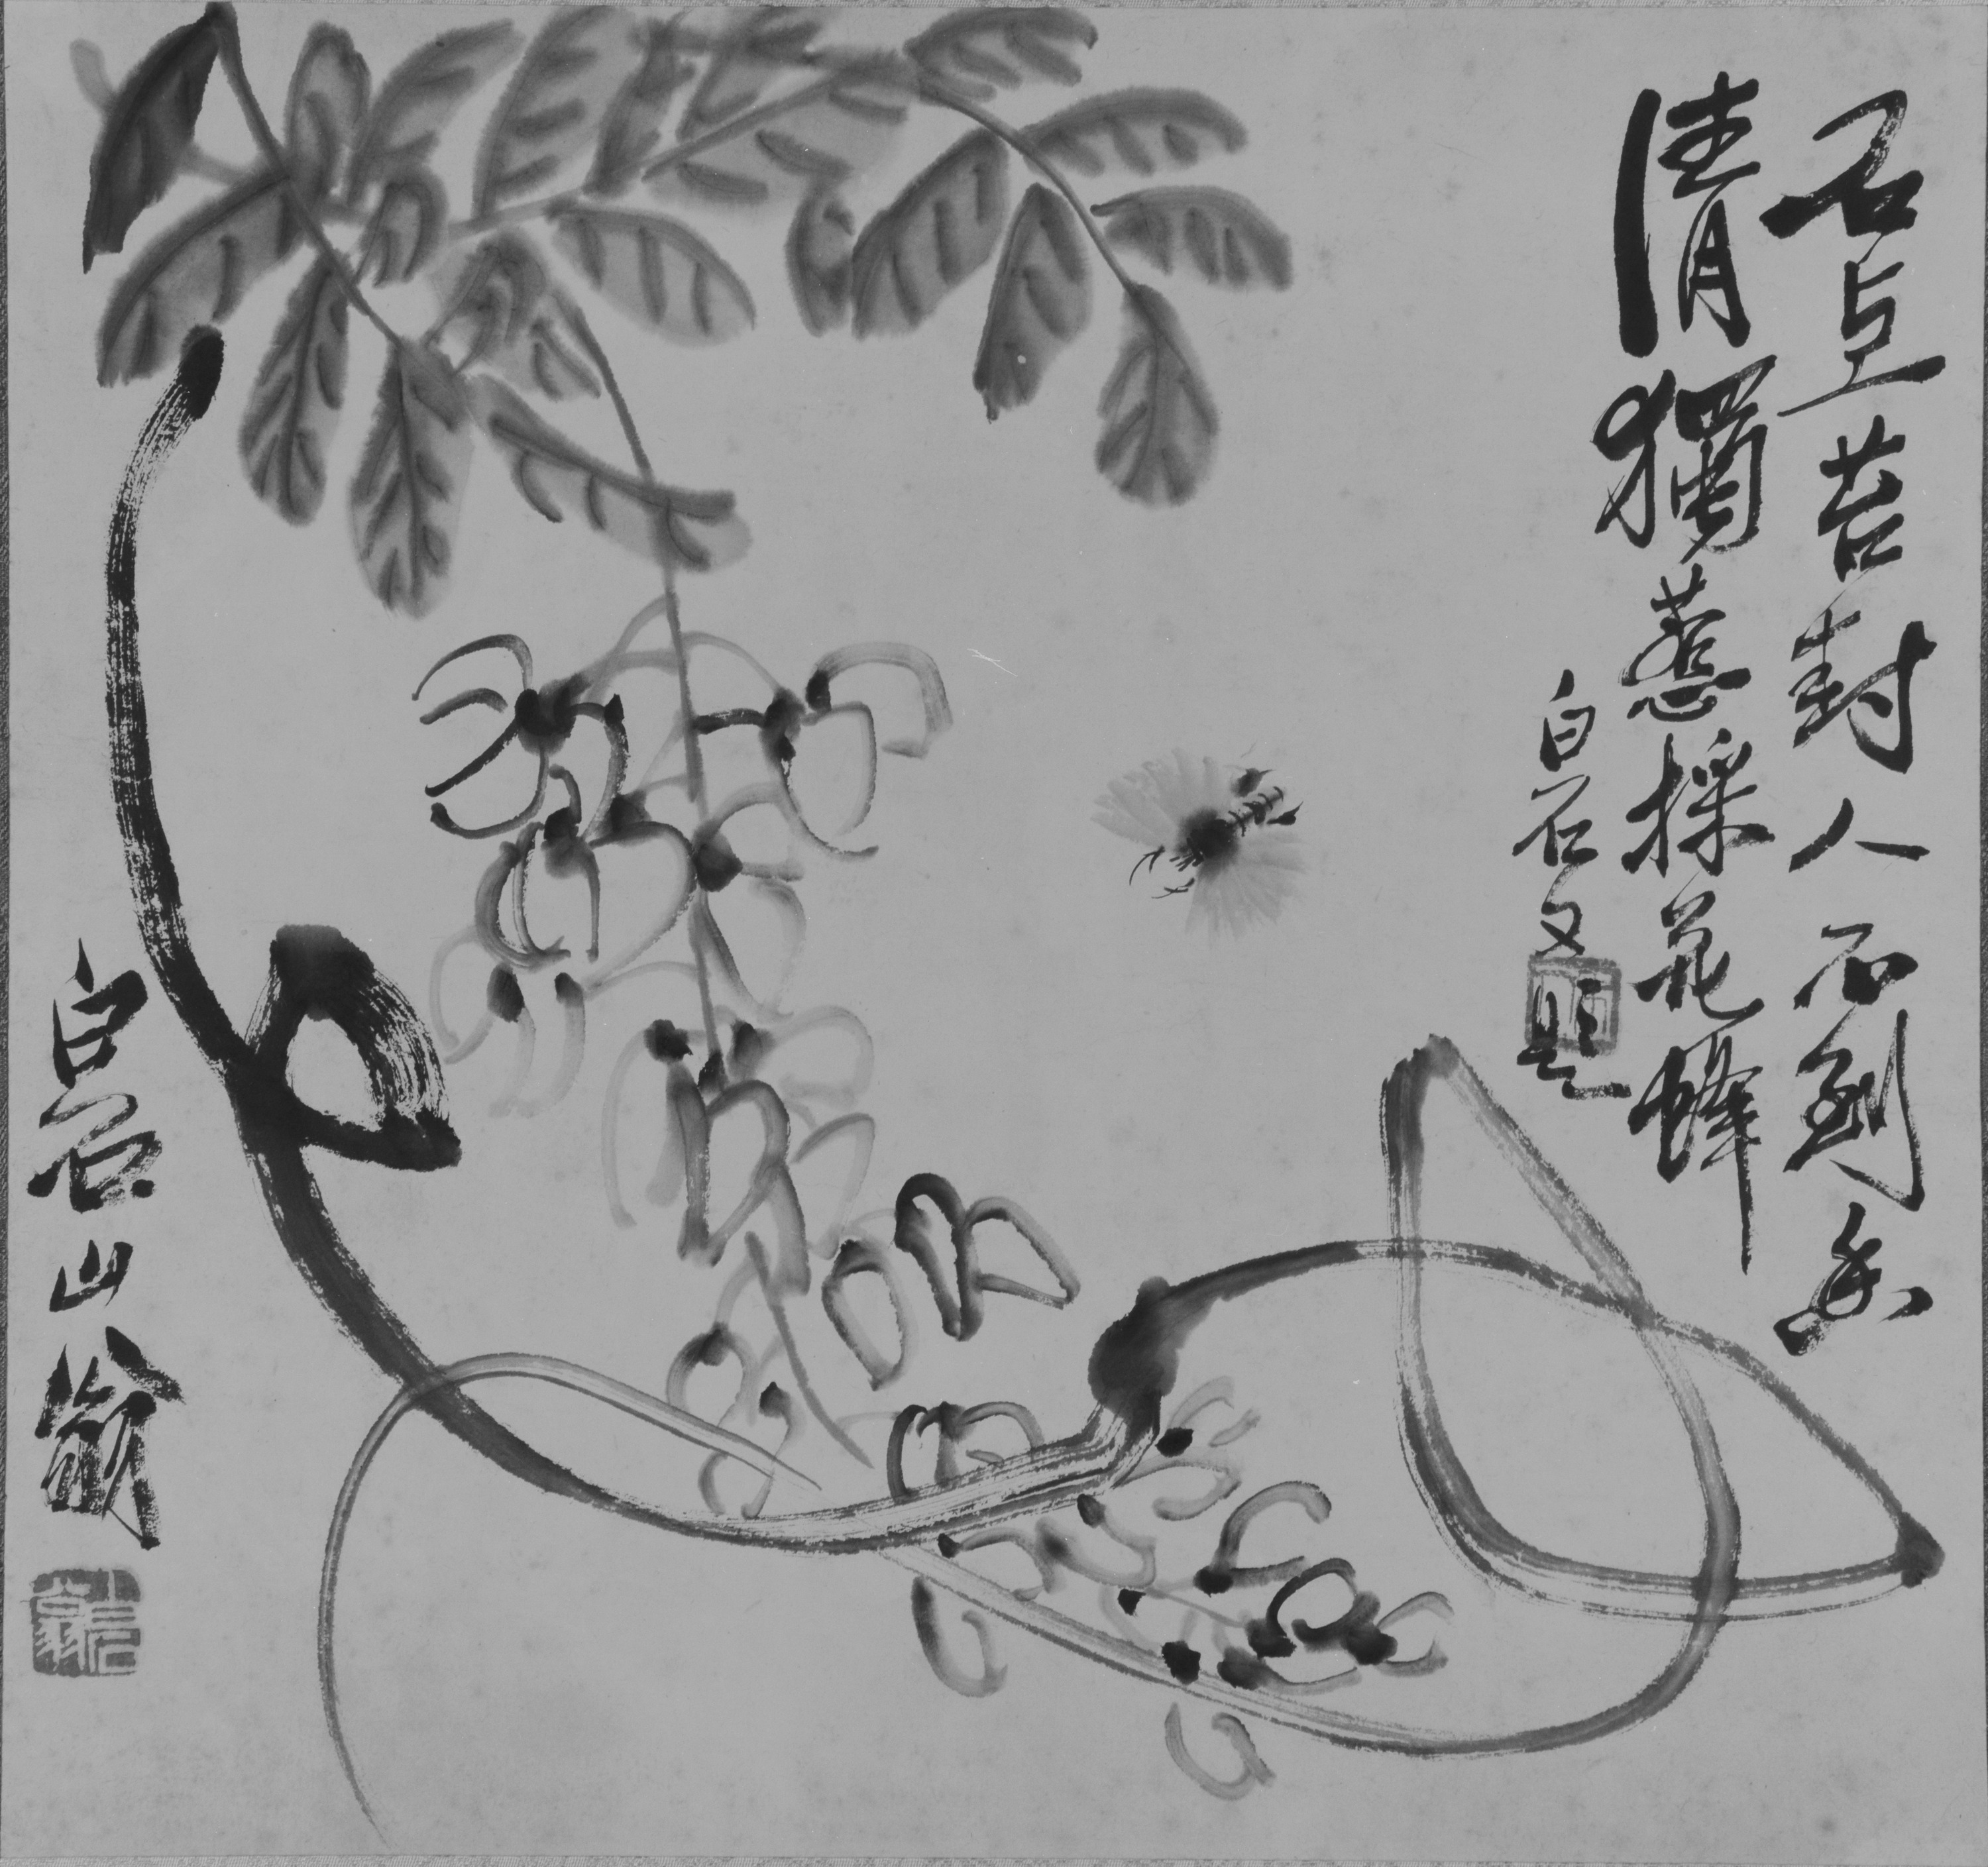 石苔封人不到香
清獨惹採花蜂
白石又題
白石山翁